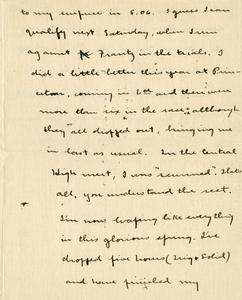 to my surprise in 5.06. I guess I can
qualify next Saturday, when I run
against Frantz in the trials. I
did a little better this year at Prin-
ceton, coming in 6th and there were
more than six in the race, although
they all dropped out, bringing me
in last as usual. In the Central
High meet, I was "scummed". That's
all, you understand the rest.
I'm now loafing like everything
in this glorious spring. I've
dropped five hours (Trig & Solid)
and have finished my